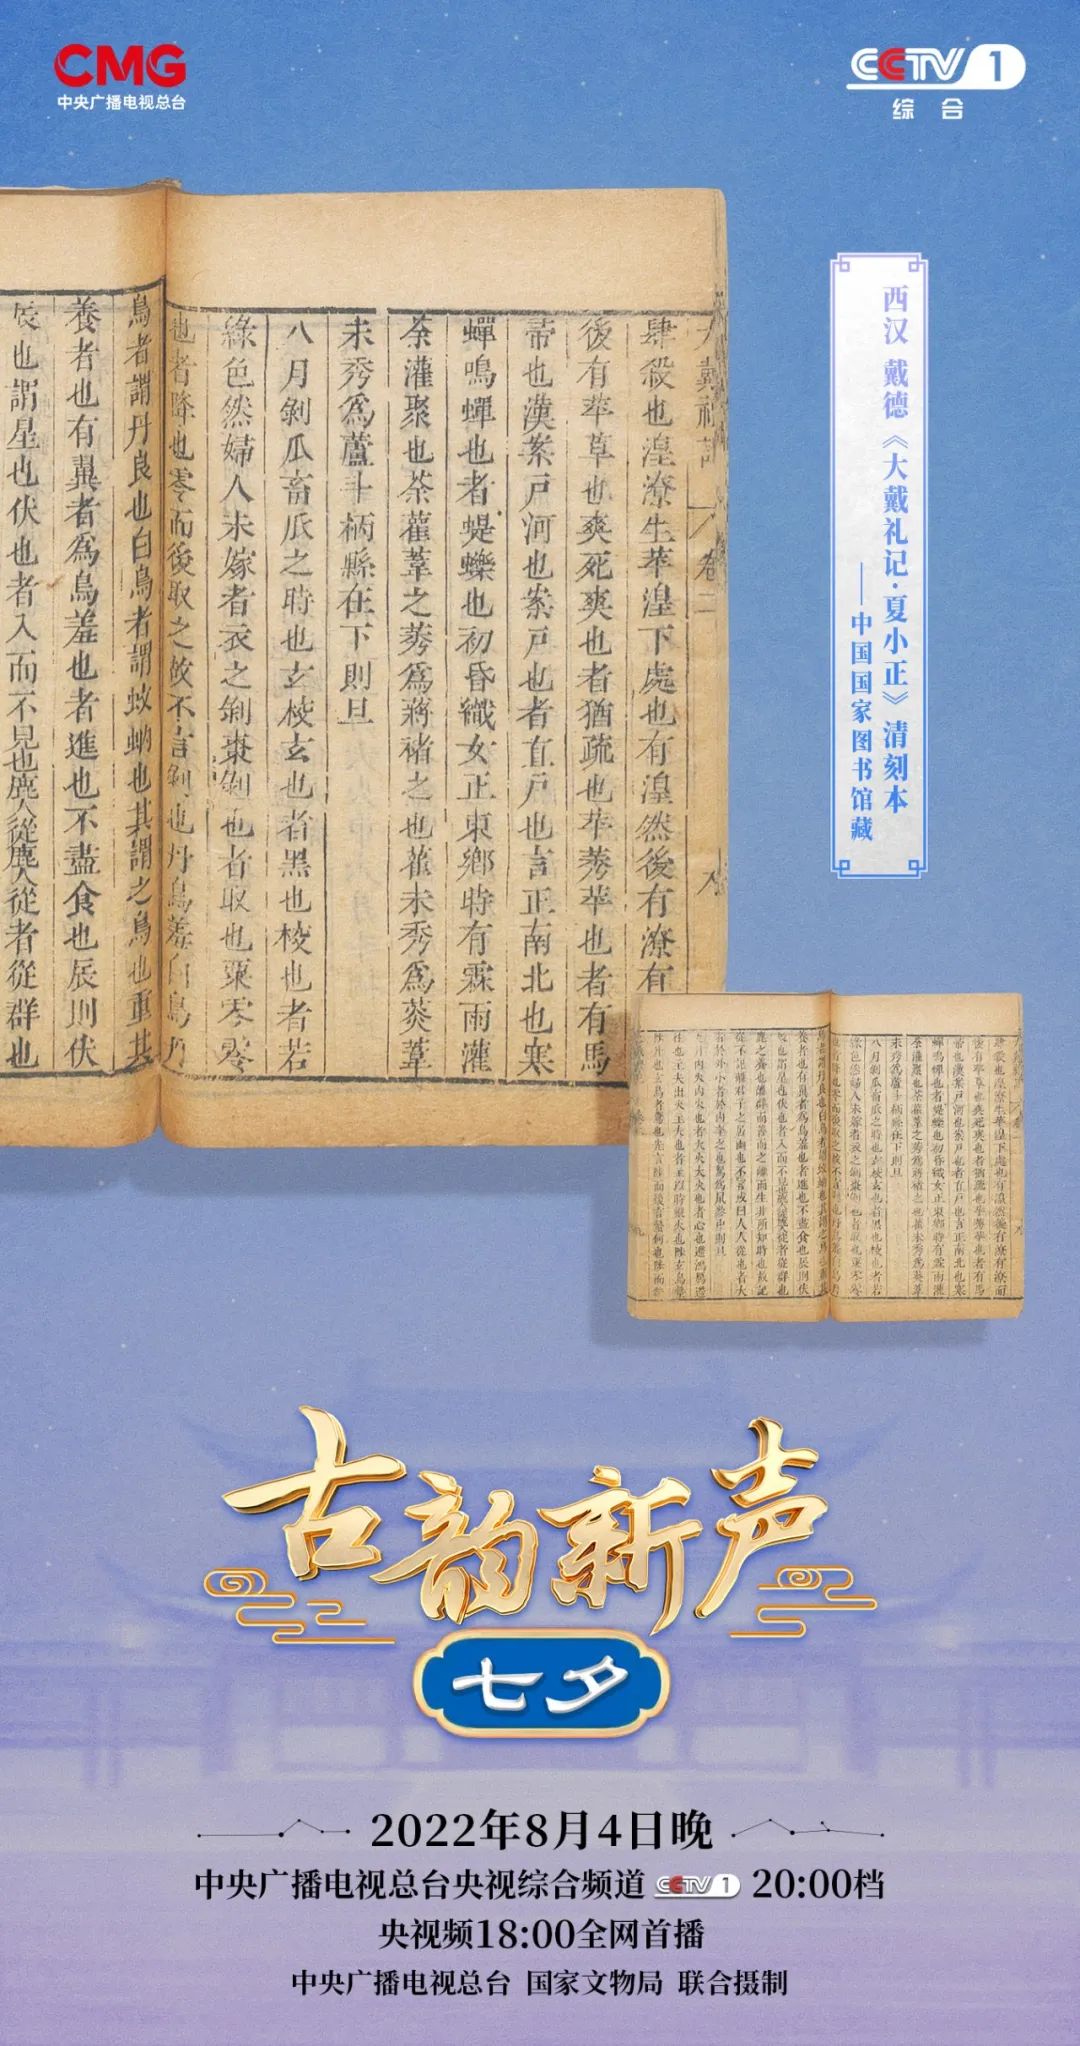 CMG
中央广播电视总台
CCTV 1
综合
西汉 戴德《大戴礼记·夏小正》清刻本
——中国国家图书馆藏
大戴禮記 卷二
肆殺也湟潦生苹湟下處也有湟然後有潦有
後有苹草也爽死爽也者猶疏也苹莠苹也者有馬
帚也漢案戸河也案戸也者直戸也言正南北也寒
蟬鳴蟬也者蝭蠑也初昏織女正東鄉時有霖雨灌
荼灌聚也荼雚葦之莠爲蔣褚之也雚未秀爲菼葦
未秀爲蘆斗柄縣在下則旦
八月剝瓜畜瓜之時也玄校玄也者黑也校也者若
綠色然婦人未嫁者衣之剝棗剝也者取也栗零零
也者降也零而後取之故不言剝也丹鳥羞白鳥丹
鳥者謂丹良也白鳥者謂蚊蚋也其謂之鳥也重其
養者也有翼者爲鳥羞也者進也不盡食也辰則伏
辰也謂星也伏也者入而不見也鹿人從鹿人從者從群也
古韵新声
七夕
2022年8月4日晚
中央广播电视总台央视综合频道 CCTV 1 20:00档
央视频18:00全网首播
中央广播电视总台 国家文物局 联合摄制